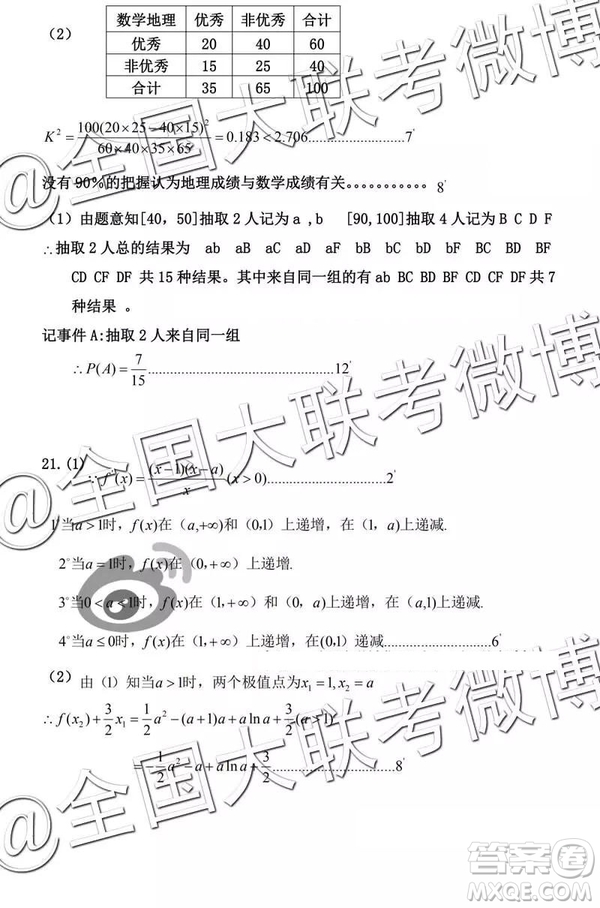 （2）
数学地理 优秀 非优秀 合计
优秀 20 40 60
非优秀 15 25 40
合计 35 65 100
K² = 100(20×25−40×15)² / 60×40×35×65 = 0.183 < 2.706..................7'
没有 90%的把握认为地理成绩与数学成绩有关。。。。。。。。。。。8'
（1）由题意知[40，50]抽取 2 人记为 a ,b [90,100]抽取 4 人记为 B C D F
∴抽取 2 人总的结果为 ab aB aC aD aF bB bC bD bF BC BD BF
CD CF DF 共 15 种结果。其中来自同一组的有 ab BC BD BF CD CF DF 共 7
种结果 。
记事件 A:抽取 2 人来自同一组
∴P(A) = 7/15..................................12'
21.(1)
∵f'(x) = (x−1)(x−a)/x (x > 0)........................2'
1°当a > 1时，f(x)在（a,+∞）和（0,1）上递增，在（1,a）上递减.
2°当a = 1时，f(x)在（0,+∞）上递增.
3°当0 < a < 1时，f(x)在（1,+∞）和（0,a）上递增，在（a,1)上递减.
4°当a ≤ 0时，f(x)在（1,+∞）上递增，在（0,1）递减....................6'
（2）由（1）知当a > 1时，两个极值点为x₁ = 1, x₂ = a
∴f(x₂) + 3/2 x₁ = 1/2 a² − (a+1)a + a ln a + 3/2 (a > 1)
= −1/2 a² − a + a ln a + 3/2........................8'
@全国大联考微博
@全国大联考微博
@全国大联考微博
答案卷
MXQE.COM